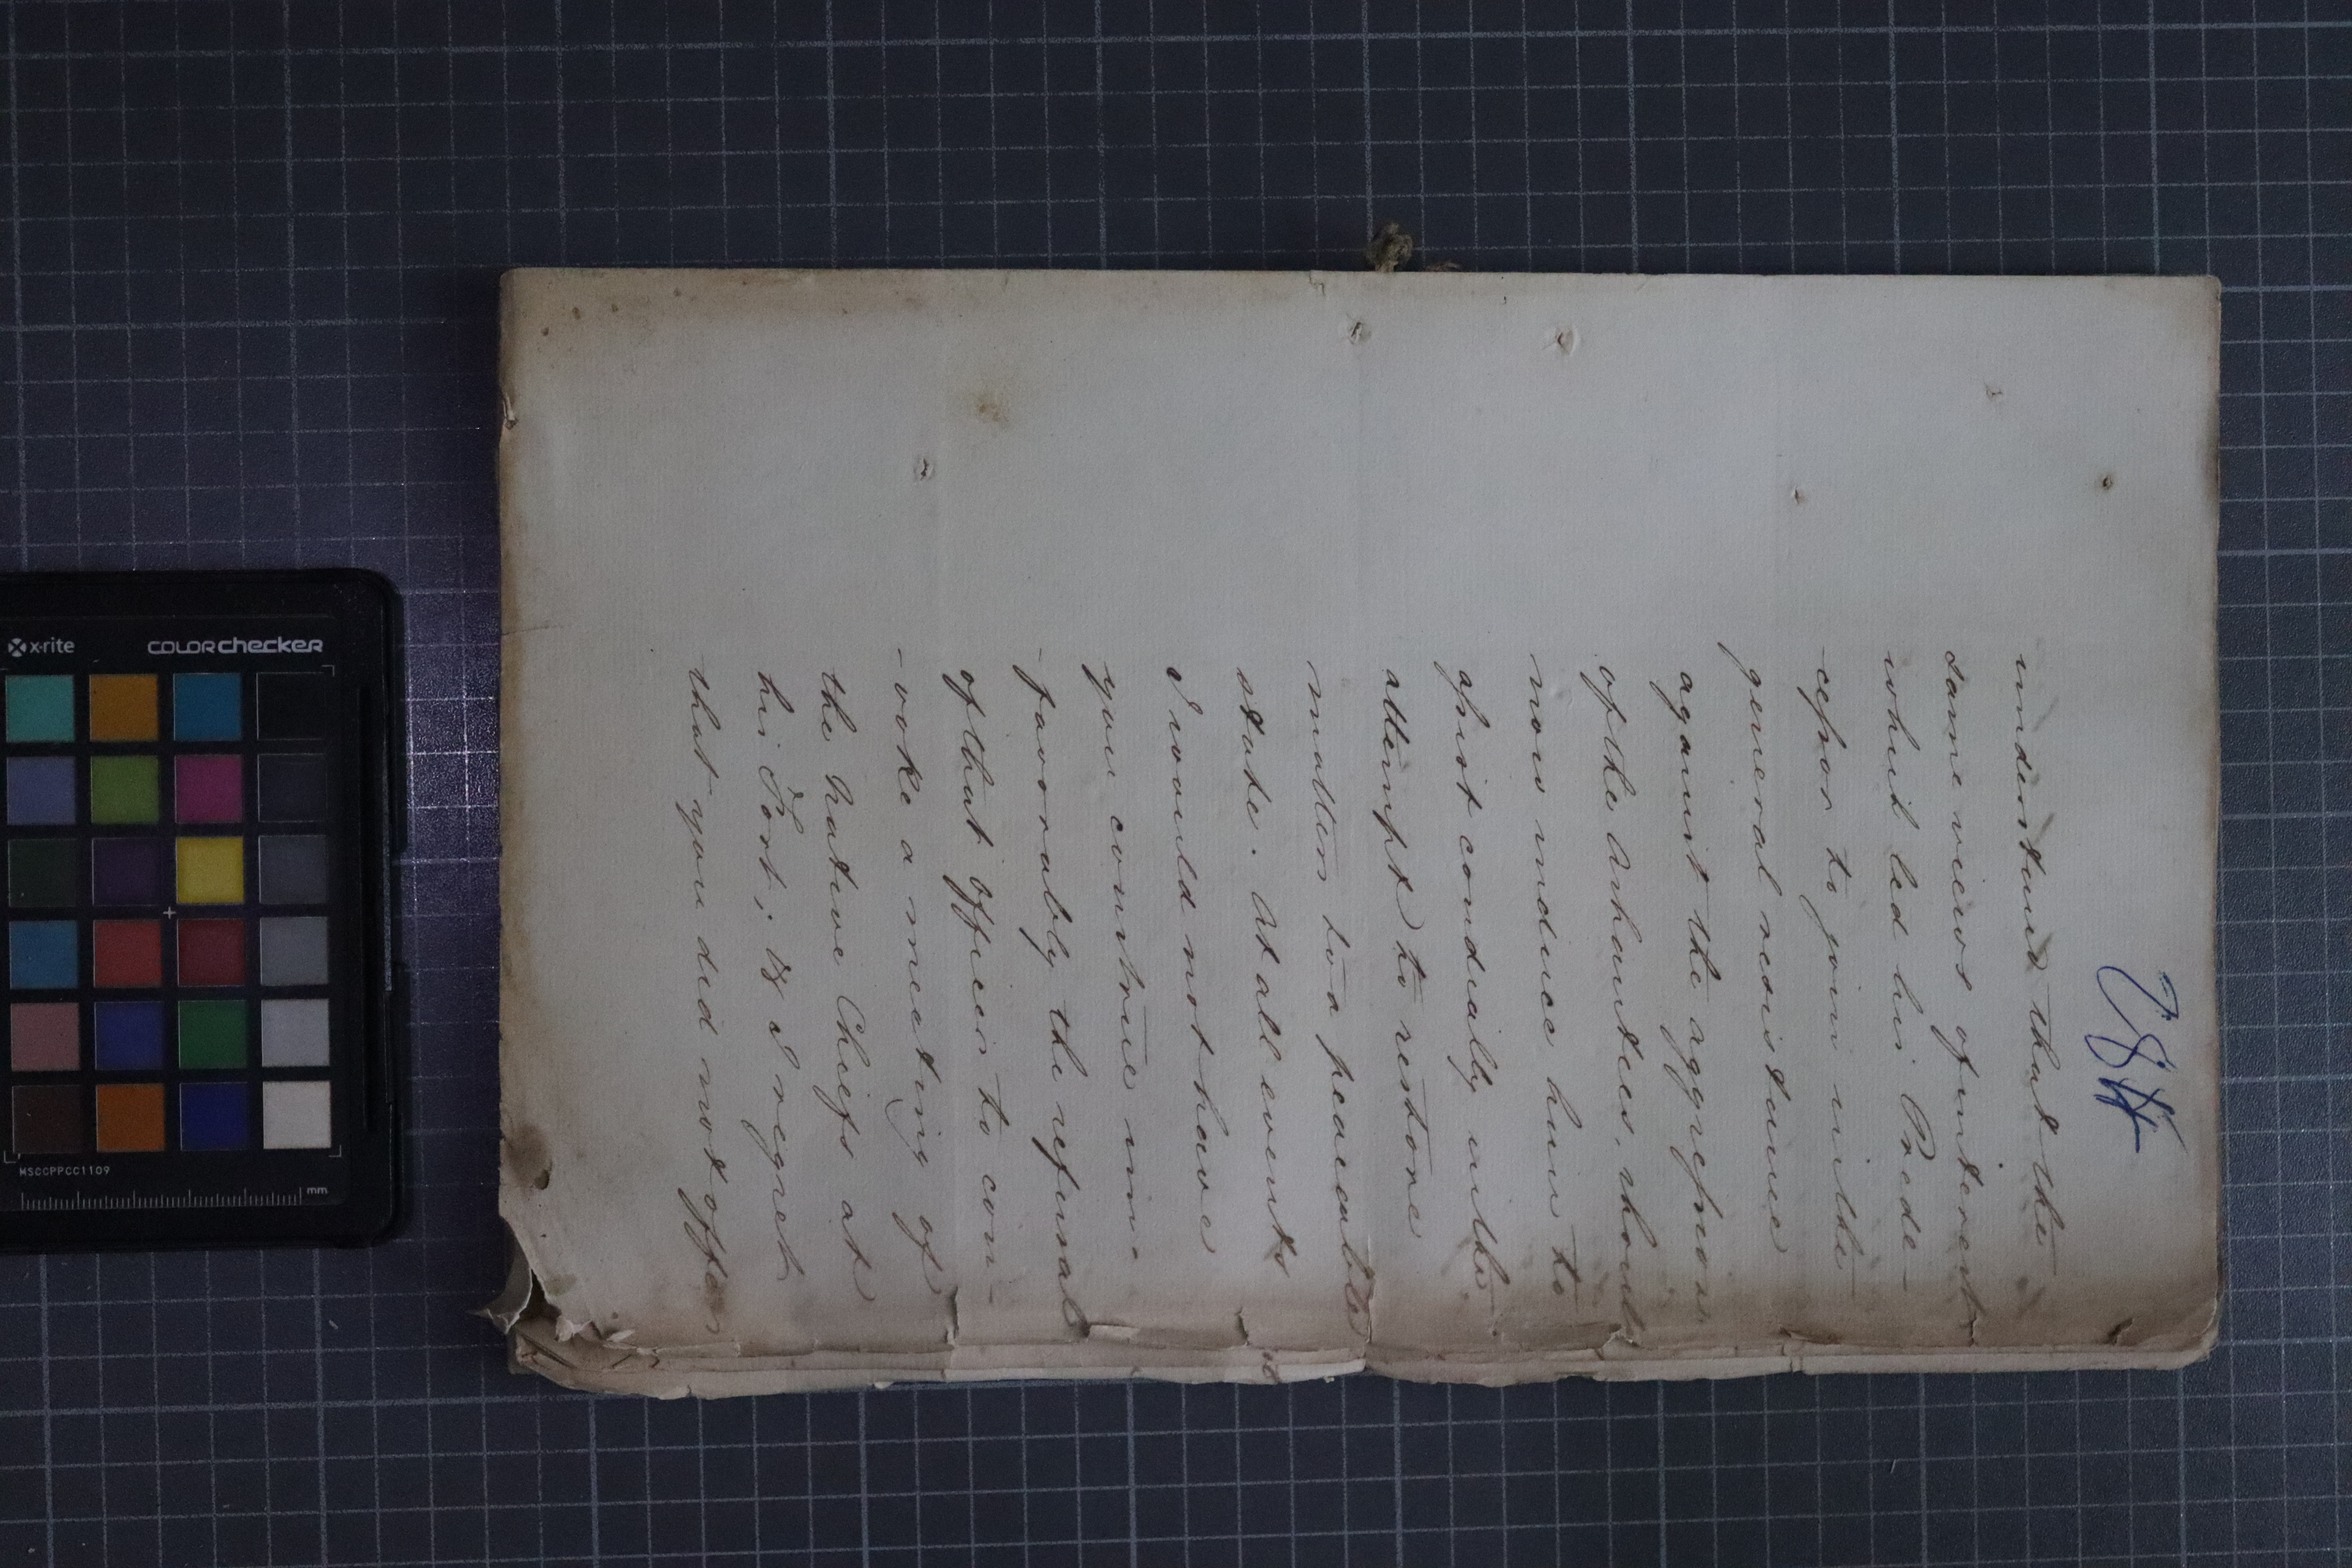 understand that the
same views of interest
which led his Prede-
-cessor to join in the
general resistance
against the aggression
of the Ashantees, should
now induce him to
assist cordially in the
attempt to restore
matters to a peaceable
state. At all events
I would not have
you construe un-
-favorably the refusal
of that Officer to con-
-voke a meeting of
the Native Chiefs at
his Fort; & I regret
that you did not offer
x-rite
COLORchecker
MSCCPPCC1109
mm